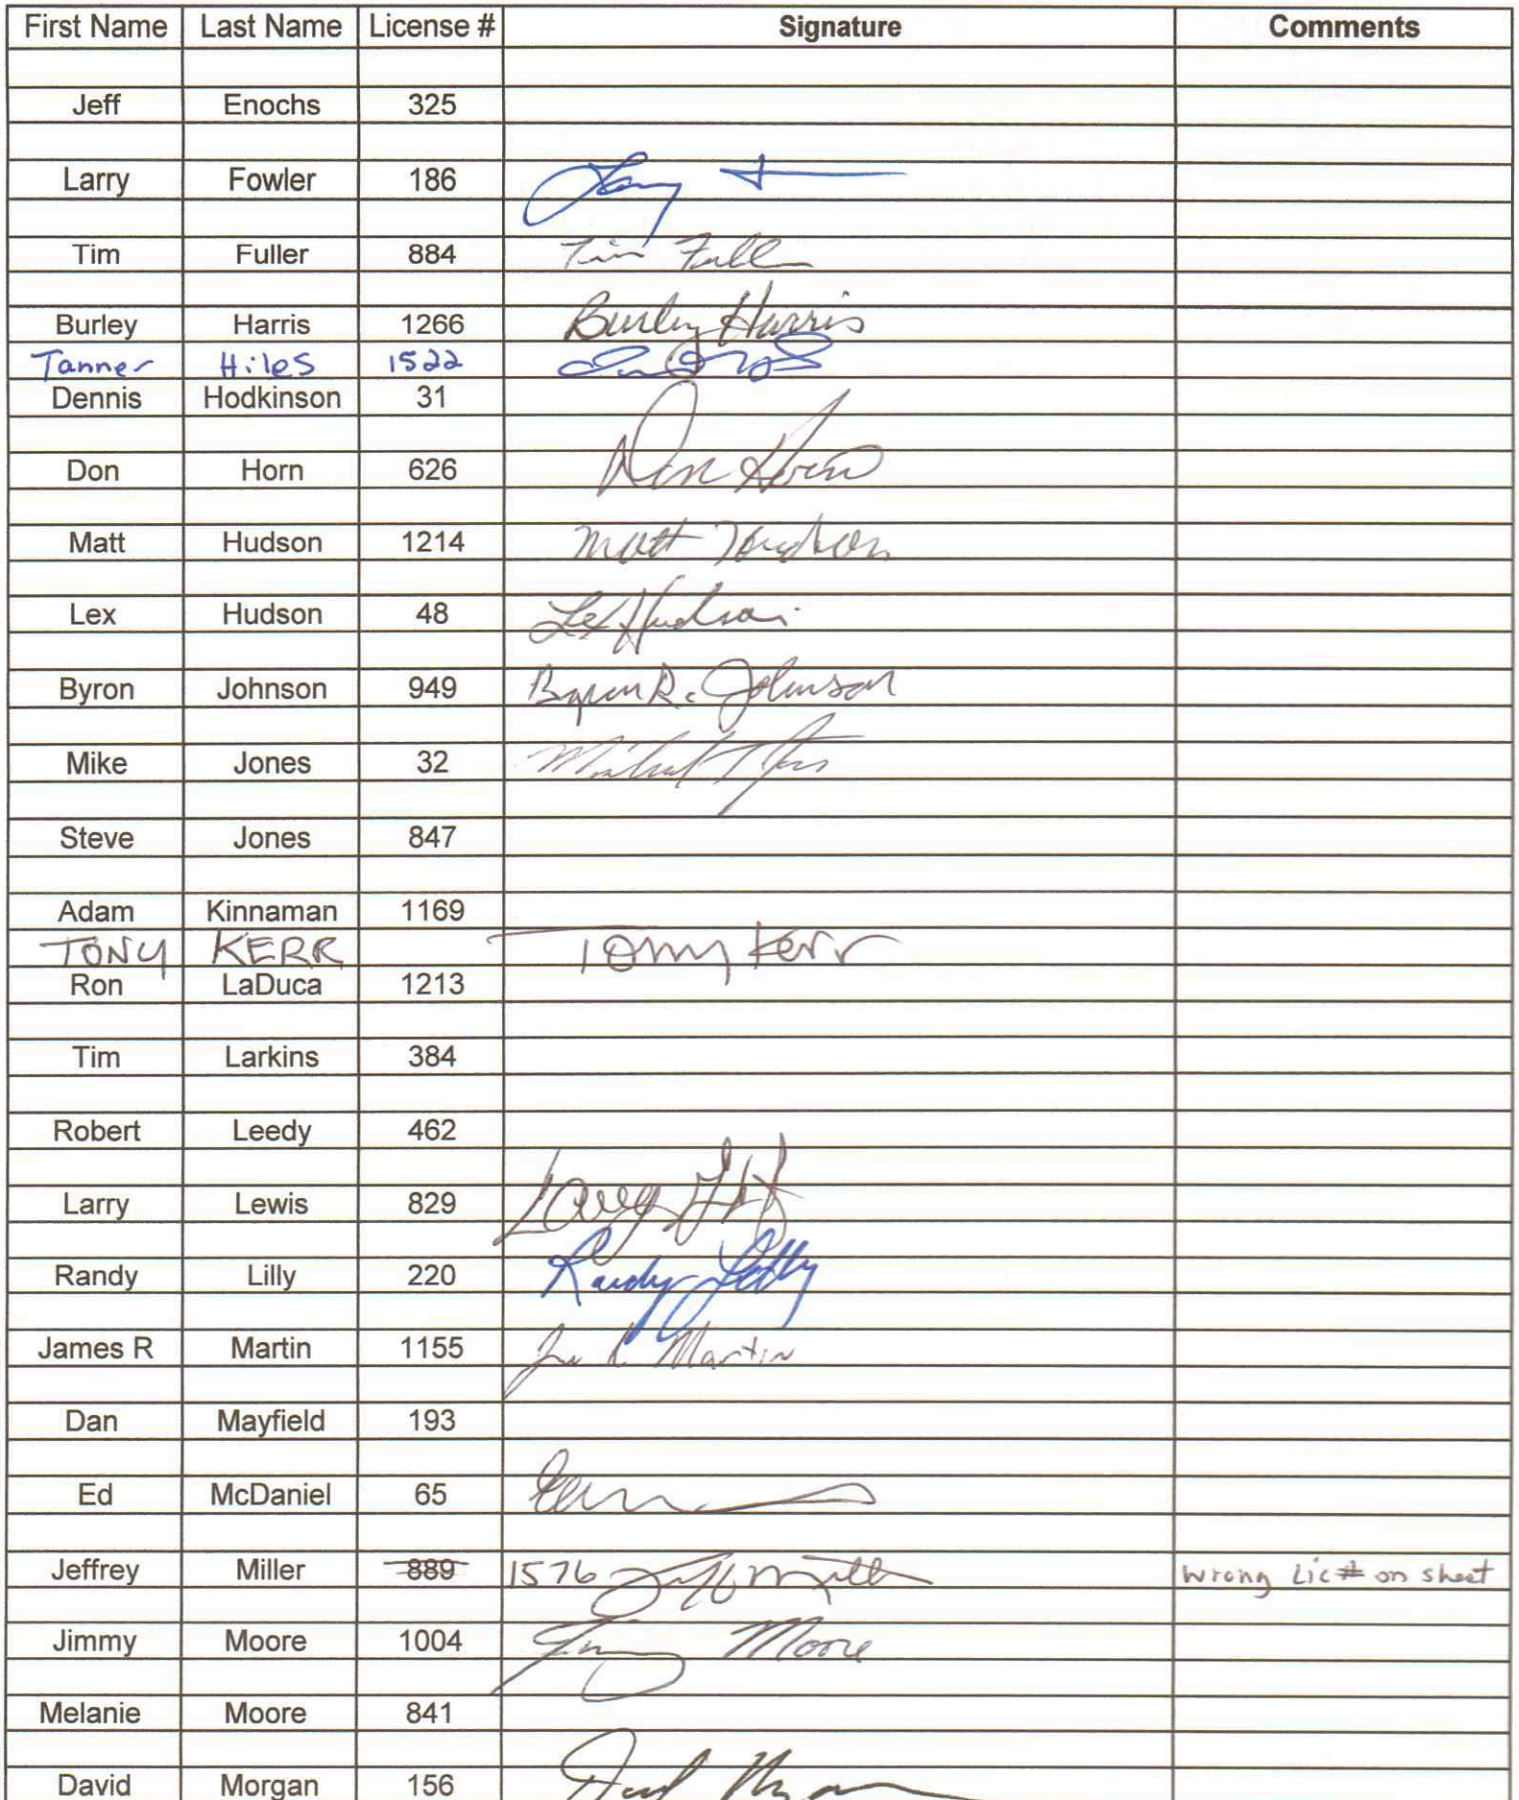 First Name Last Name License # Signature Comments
Jeff Enochs 325
Larry Fowler 186 Larry
Tim Fuller 884 Tim Fuller
Burley Harris 1266 Burley Harris
Tanner Hiles 1522
Dennis Hodkinson 31
Don Horn 626 Don Horn
Matt Hudson 1214 Matt Hudson
Lex Hudson 48 Lex Hudson
Byron Johnson 949 Byron R. Johnson
Mike Jones 32 Michael Jones
Steve Jones 847
Adam Kinnaman 1169
TONY KERR Tony Kerr
Ron LaDuca 1213
Tim Larkins 384
Robert Leedy 462
Larry Lewis 829 Larry
Randy Lilly 220 Randy Lilly
James R Martin 1155 R Martin
Dan Mayfield 193
Ed McDaniel 65
Jeffrey Miller 889 1576 Jeff Miller Wrong Lic # on sheet
Jimmy Moore 1004 Jimmy Moore
Melanie Moore 841
David Morgan 156